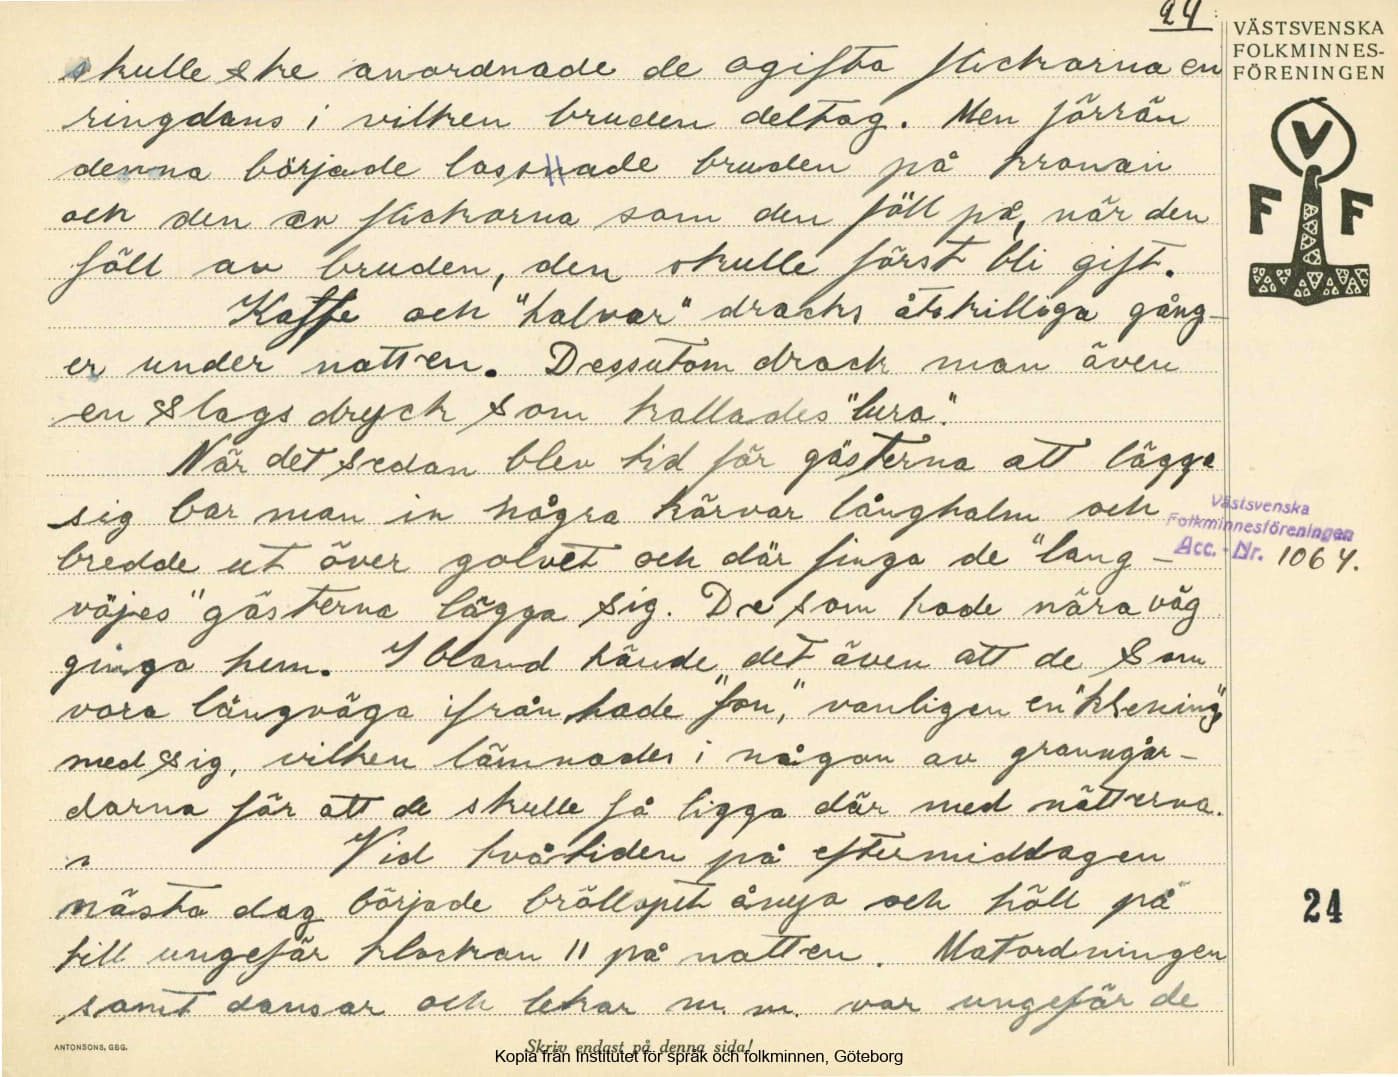 24
VÄSTSVENSKA
FOLKMINNES-
FÖRENINGEN
V
F F
skulle ske anordnade de ogifta flickorna en
ringdans i vilken bruden deltog. Men förrän
denna började lossnade bruden på kronan
och den av flickorna som den föll på, när den
föll av bruden, den skulle först bli gift.
Kaffe och "halvar" dracks åtskilliga gång-
er under natten. Dessutom drack man även
en slags dryck som kallades "lura".
När det sedan blev tid för gästerna att lägga
sig bar man in några kärvar långhalm och
bredde ut över golvet och där finga de "lang-
väjes" gästerna lägga sig. De som hade nära väg
ginga hem. Ibland hände det även att de som
vora långväga ifrån hade "fon", vanligen en "klening"
med sig, vilken lämnades i någon av granngår-
darna för att de skulle få ligga där med nätterna.
Vid tvåtiden på eftermiddagen
nästa dag började bröllopet ånyo och höll på
till ungefär klockan 11 på natten. Matordningen
samt dansar och lekar m. m. var ungefär de
Västsvenska
Folkminnesföreningen
Acc. - Nr. 1064.
24
ANTONSONS, GBG.
Skriv endast på denna sida!
Kopia från Institutet för språk och folkminnen, Göteborg